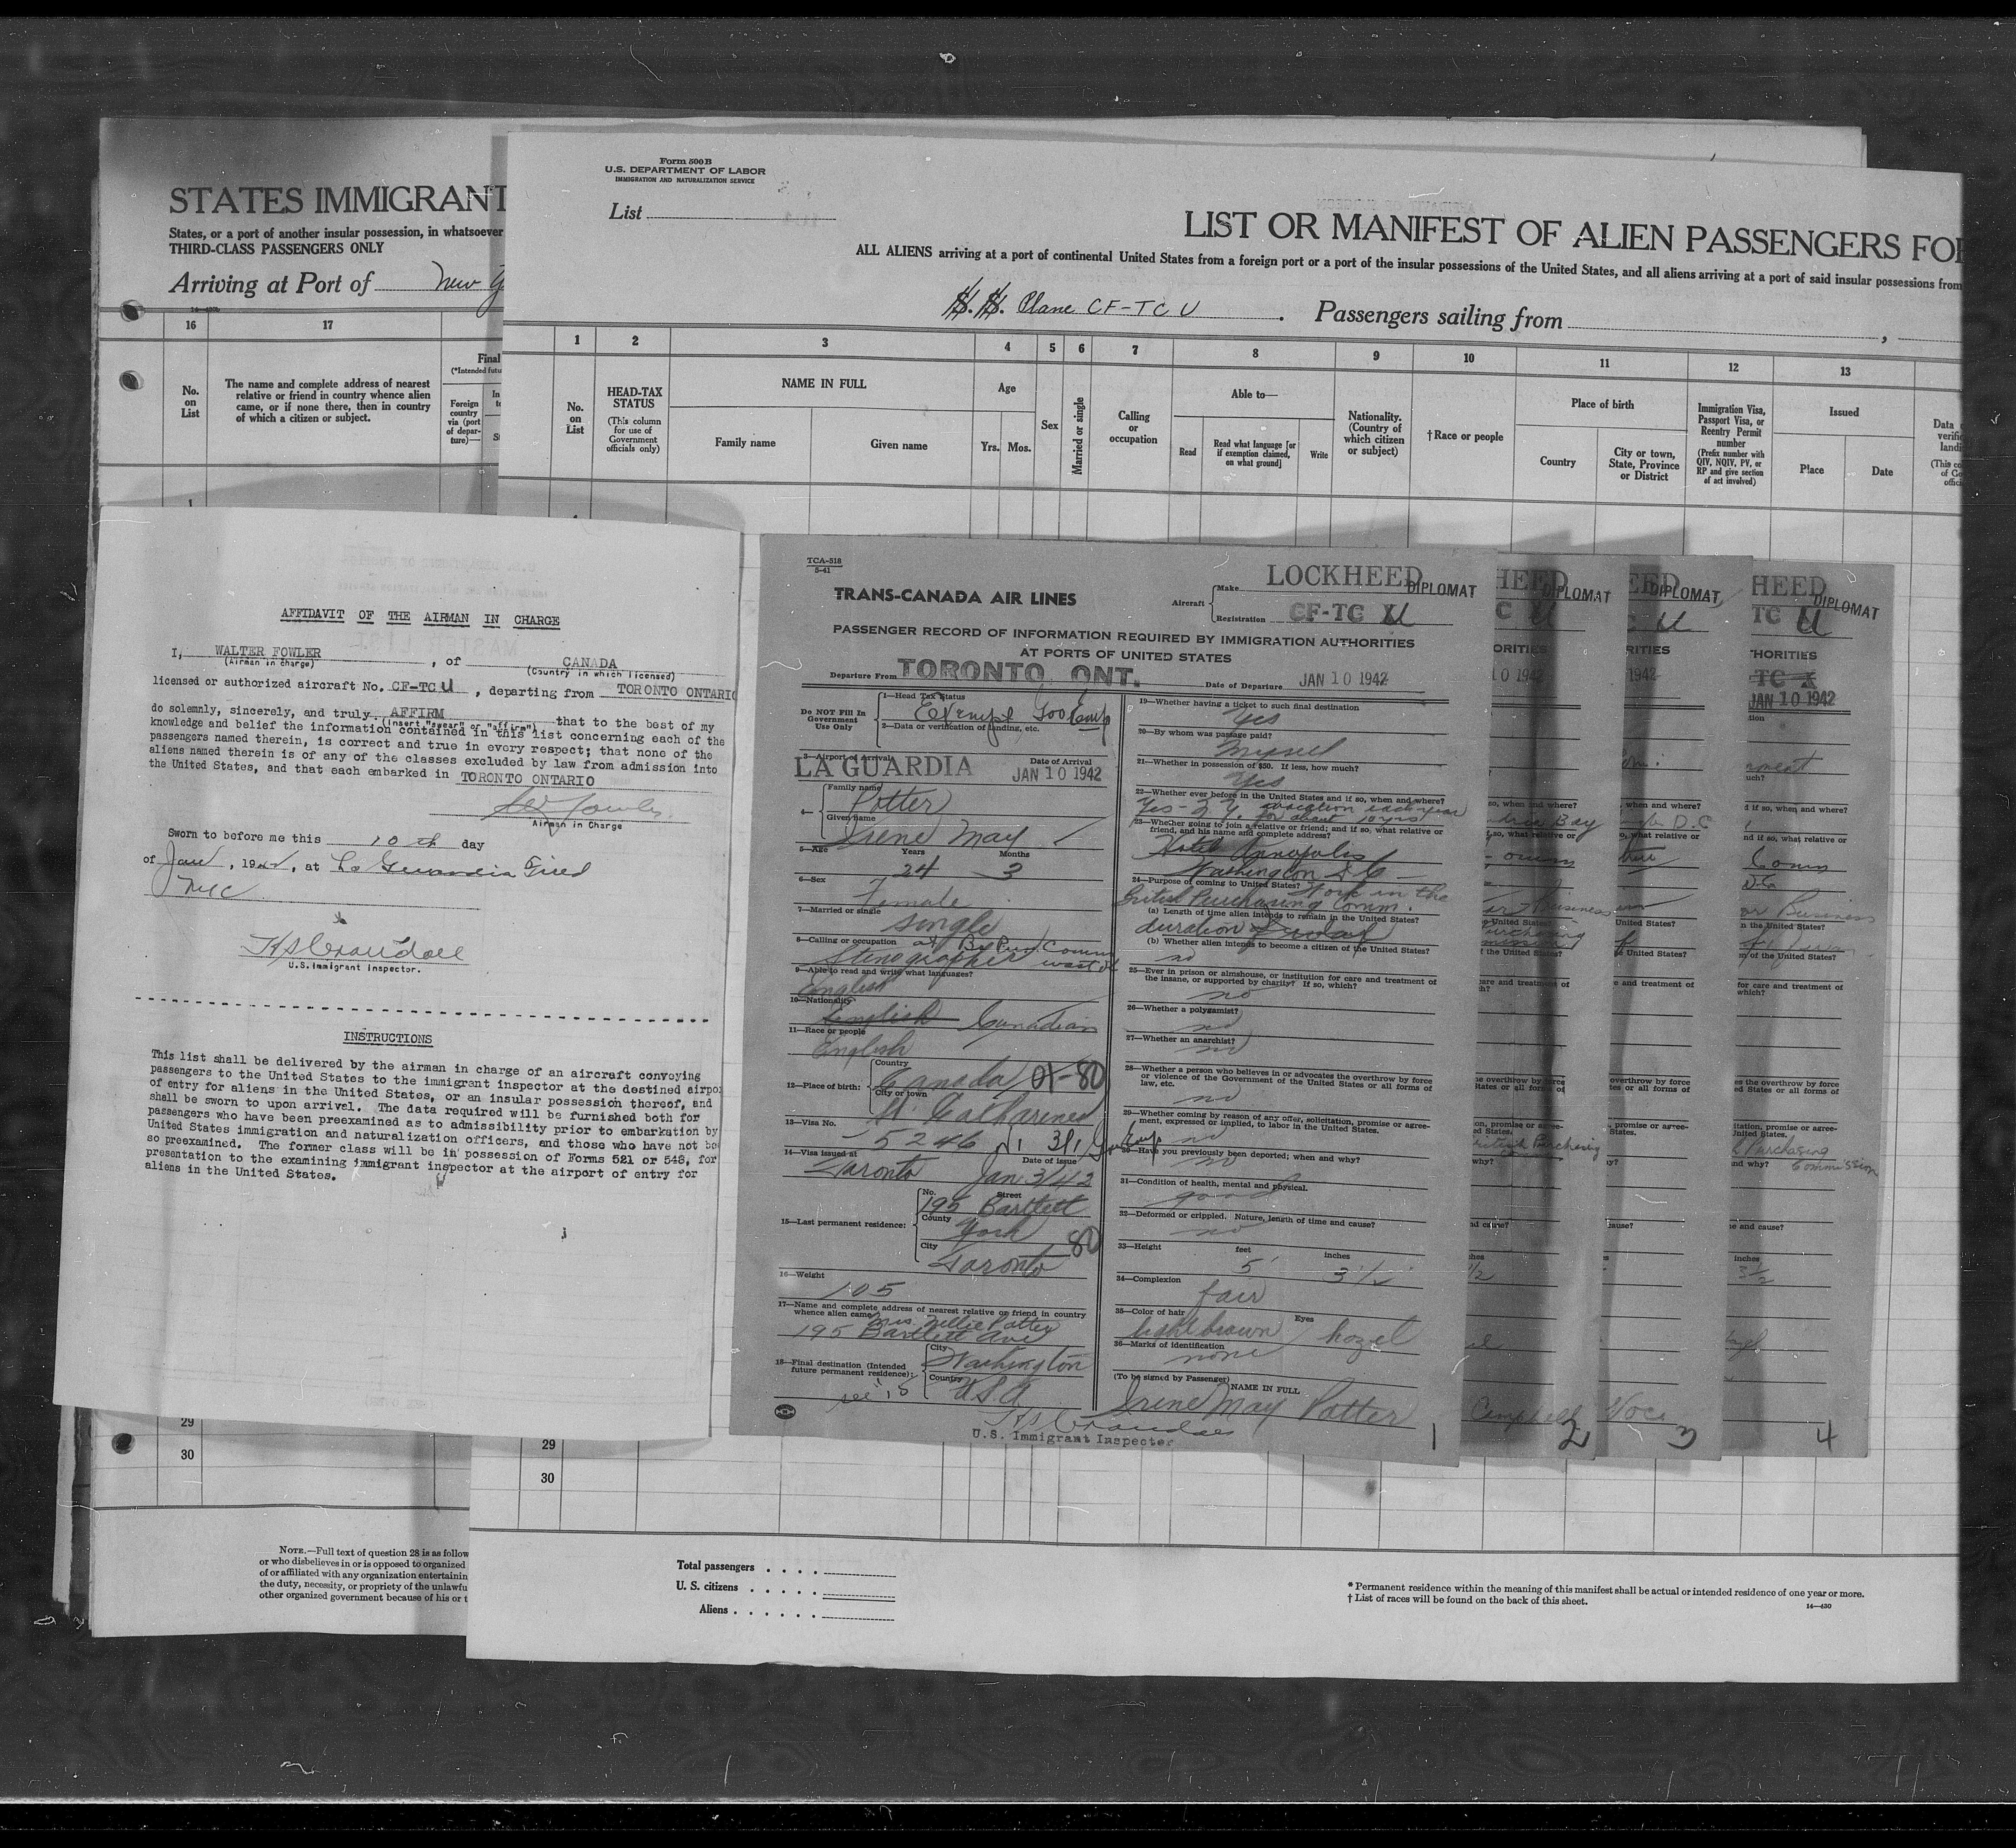 STATES IMMIGRANT
States, or a port of another insular possession, in whatsoever
THIRD-CLASS PASSENGERS ONLY
Arriving at Port of New Y
16 17
Final
(*Intended futu
No. on List
The name and complete address of nearest relative or friend in country whence alien came, or if none there, then in country of which a citizen or subject.
Foreign country via (port of departure)—
1
29
30
NOTE.—Full text of question 28 is as follow
or who disbelieves in or is opposed to organized
of or affiliated with any organization entertainin
the duty, necessity, or propriety of the unlawfu
other organized government because of his or
Form 500 B
U.S. DEPARTMENT OF LABOR
IMMIGRATION AND NATURALIZATION SERVICE
List
LIST OR MANIFEST OF ALIEN PASSENGERS FOR
ALL ALIENS arriving at a port of continental United States from a foreign port or a port of the insular possessions of the United States, and all aliens arriving at a port of said insular possessions from
S. S. Plane CF-TCU . Passengers sailing from ,
1 2 3 4 5 6 7 8 9 10 11 12 13
No. on List
HEAD-TAX STATUS
(This column for use of Government officials only)
NAME IN FULL
Family name
Given name
Age
Yrs. Mos.
Sex
Married or single
Calling or occupation
Able to—
Read
Read what language [or if exemption claimed, on what ground]
Write
Nationality. (Country of which citizen or subject)
†Race or people
Place of birth
Country
City or town, State, Province or District
Immigration Visa, Passport Visa, or Reentry Permit number
(Prefix number with QIV, NQIV, PV, or RP and give section of act involved)
Issued
Place
Date
29
30
Total passengers
U. S. citizens
Aliens
* Permanent residence within the meaning of this manifest shall be actual or intended residence of one year or more.
† List of races will be found on the back of this sheet.
14—430
AFFIDAVIT OF THE AIRMAN IN CHARGE
I, WALTER FOWLER , of CANADA
(Airman in charge) (Country in which licensed)
licensed or authorized aircraft No. CF-TCU , departing from TORONTO ONTARIO
do solemnly, sincerely, and truly AFFIRM that to the best of my
(insert "swear" or "affirm")
knowledge and belief the information contained in this list concerning each of the
passengers named therein, is correct and true in every respect; that none of the
aliens named therein is of any of the classes excluded by law from admission into
the United States, and that each embarked in TORONTO ONTARIO
Airman in Charge
Sworn to before me this 10 th day
of Jan , 1942, at La Guardia Field
NYC
HS Crandall
U.S. Immigrant Inspector.
INSTRUCTIONS
This list shall be delivered by the airman in charge of an aircraft conveying
passengers to the United States to the immigrant inspector at the destined airpo
of entry for aliens in the United States, or an insular possession thereof, and
shall be sworn to upon arrival. The data required will be furnished both for
passengers who have been preexamined as to admissibility prior to embarkation by
United States immigration and naturalization officers, and those who have not be
so preexamined. The former class will be in possession of Forms 521 or 548, for
presentation to the examining immigrant inspector at the airport of entry for
aliens in the United States.
TCA-518
5-41
TRANS-CANADA AIR LINES
Aircraft
Make LOCKHEED DIPLOMAT
Registration CF-TC U
PASSENGER RECORD OF INFORMATION REQUIRED BY IMMIGRATION AUTHORITIES
AT PORTS OF UNITED STATES
Departure From TORONTO, ONT. Date of Departure JAN 10 1942
Do NOT Fill In Government Use Only
1—Head Tax Status
Exempt
2—Data or verification of landing, etc.
3—Airport of Arrival Date of Arrival
LA GUARDIA JAN 10 1942
4—
Family name
Potter
Given name
Irene May
5—Age Years 24 Months 3
6—Sex
Female
7—Married or single
single
8—Calling or occupation
Stenographer
9—Able to read and write what languages?
English
10—Nationality
English Canadian
11—Race or people
English
12—Place of birth:
Country
Canada 80
City or town
St. Catharines
13—Visa No.
5246
14—Visa issued at Date of issue
Toronto Jan 3/42
15—Last permanent residence:
No. Street
195 Bartlett
County
York 80
City
Toronto
16—Weight
105
17—Name and complete address of nearest relative or friend in country whence alien came
Mrs. Nellie Potter
195 Bartlett Ave
18—Final destination (Intended future permanent residence):
City
Washington
Country
U.S.A
see "15
19—Whether having a ticket to such final destination
Yes
20—By whom was passage paid?
Myself
21—Whether in possession of $50. If less, how much?
Yes
22—Whether ever before in the United States and if so, when and where?
Yes - N.Y. vacation each year
for about 10 yrs
23—Whether going to join a relative or friend; and if so, what relative or friend, and his name and complete address?
Hotel Annapolis
Washington D C
24—Purpose of coming to United States? Work in the
British Purchasing Comm.
(a) Length of time alien intends to remain in the United States?
duration of war
(b) Whether alien intends to become a citizen of the United States?
no
25—Ever in prison or almshouse, or institution for care and treatment of the insane, or supported by charity? If so, which?
no
26—Whether a polygamist?
no
27—Whether an anarchist?
no
28—Whether a person who believes in or advocates the overthrow by force or violence of the Government of the United States or all forms of law, etc.
no
29—Whether coming by reason of any offer, solicitation, promise or agreement, expressed or implied, to labor in the United States.
no
30—Have you previously been deported; when and why?
no
31—Condition of health, mental and physical.
good
32—Deformed or crippled. Nature, length of time and cause?
no
33—Height feet 5 inches 3 1/2
34—Complexion
fair
35—Color of hair Eyes
light brown hazel
36—Marks of identification
none
(To be signed by Passenger) NAME IN FULL
Irene May Potter
HS Crandall
U.S. Immigrant Inspector
1
HEED DIPLOMAT
10 1942
Campbell
2
EED DIPLOMAT
U
1942
3
HEED DIPLOMAT
TC U
THORITIES
TC X
JAN 10 1942
Purchasing
Commission
3 1/2
4